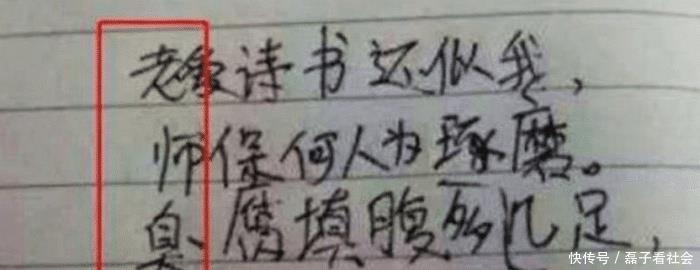 老爱诗书还似我，
师保何人为琢磨。
臭腐填腹几足，
快传号／磊子看社会